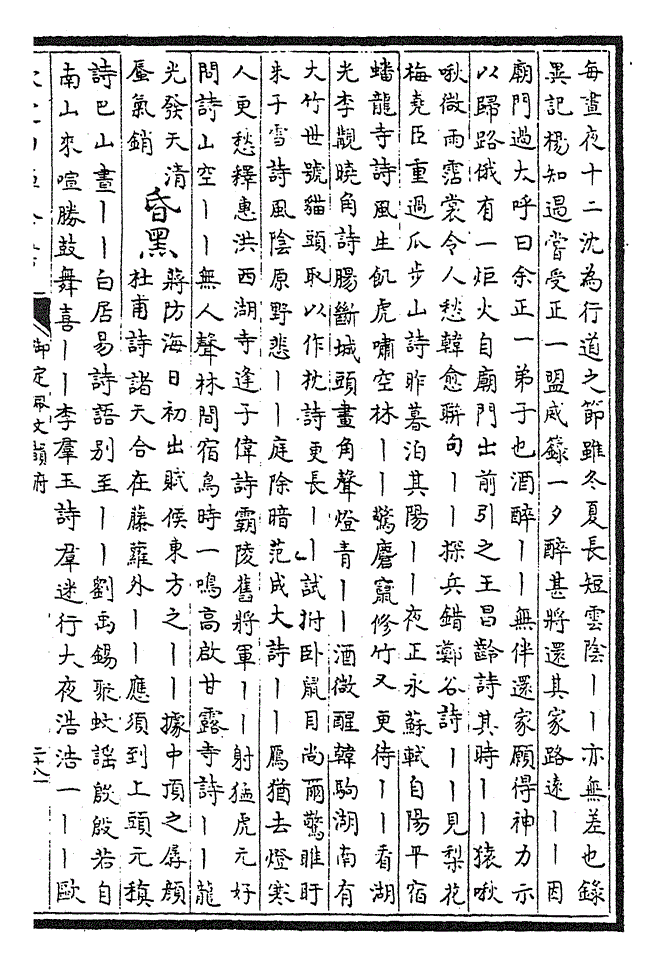 每晝夜十二沈為行道之節雖冬夏長短雲陰丨丨亦無差也錄
異記楊知遇嘗受正一盟威籙一夕醉甚將還其家路遠丨丨因
廟門過大呼曰余正一弟子也酒醉丨丨無伴還家願得神力示
以歸路俄有一炬火自廟門出前引之王昌齡詩其時丨丨猿啾
啾微雨霑裳令人愁韓愈聯句丨丨探兵錯鄭谷詩丨丨見梨花
梅堯臣重過瓜步山詩昨暮泊其陽丨丨夜正永蘇軾自陽平宿
蟠龍寺詩風生飢虎嘯空林丨丨驚麏竄修竹又更待丨丨看湖
光李覯曉角詩腸斷城頭畫角聲燈青丨丨酒微醒韓駒湖南有
大竹世號貓頭取以作枕詩更長丨丨試拊卧鼠目尚爾驚睢盱
朱子雪詩風陰原野悲丨丨庭除暗范成大詩丨丨鴈猶去燈寒
人更愁釋惠洪西湖寺逢子偉詩霸陵舊將軍丨丨射猛虎元好
問詩山空丨丨無人聲林間宿鳥時一鳴高啟甘露寺詩丨丨龍
光發天清昏黑蔣防海日初出賦候東方之丨丨據中頂之孱顏
蜃氣銷杜甫詩諸天合在藤蘿外丨丨應須到上頭元稹
詩巴山晝丨丨白居易詩語別至丨丨劉禹錫聚蚊謠殷殷若自
南山來喧騰鼓舞喜丨丨李羣玉詩羣迷行大夜浩浩一丨丨歐
御定佩文韻府